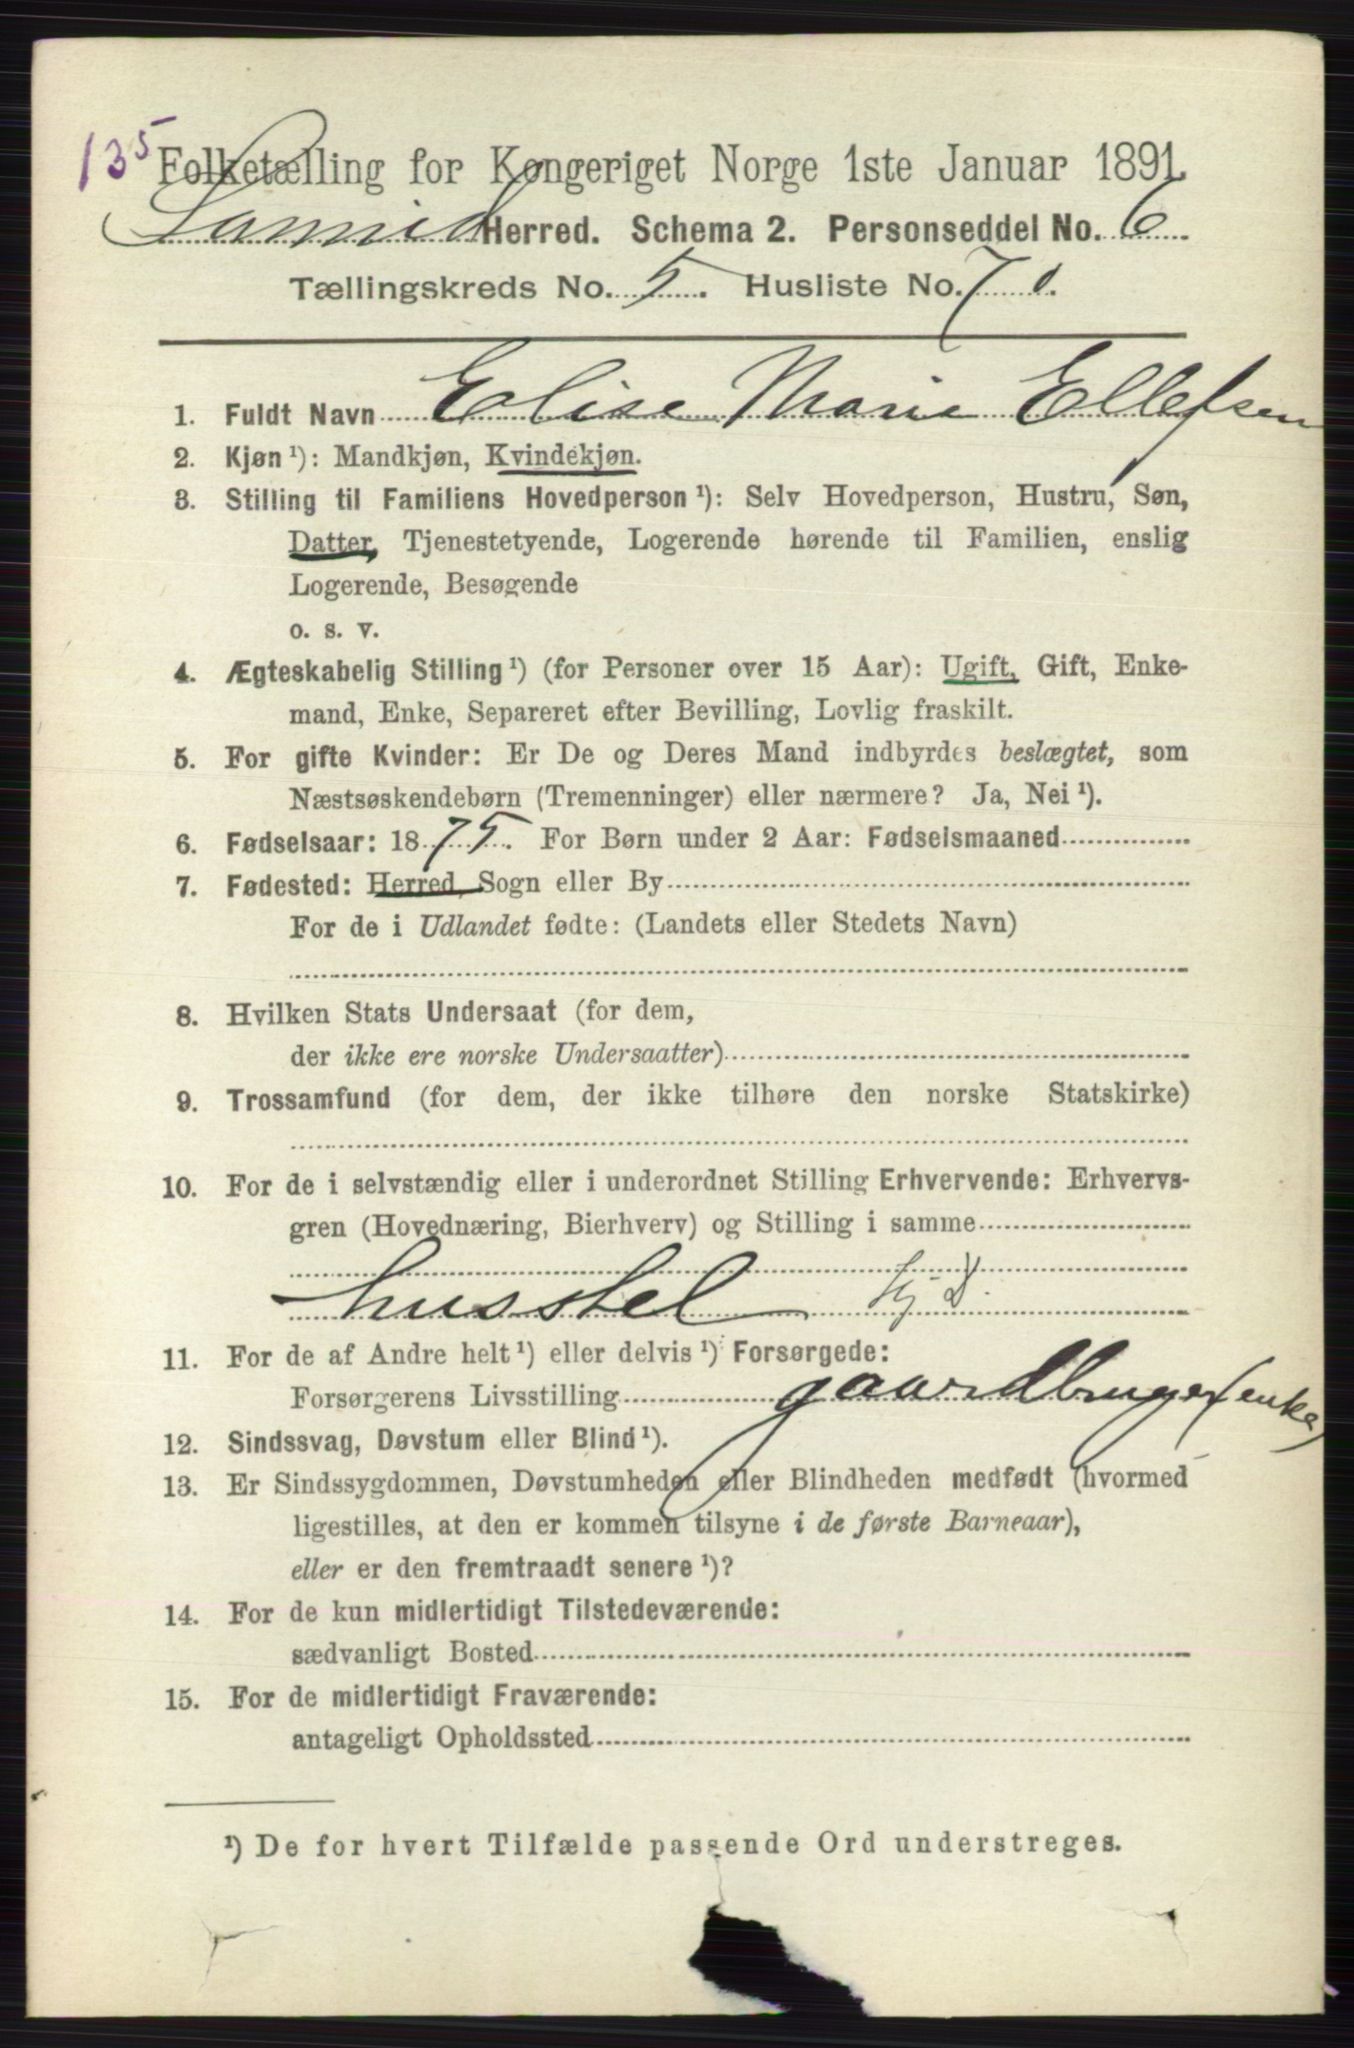 135
Folketælling for Kongeriget Norge 1ste Januar 1891.
Sannid Herred. Schema 2. Personseddel No. 6
Tællingskreds No. 5. Husliste No. 7
1. Fuldt Navn Elise Marie Ellefsen
2. Kjøn ¹): Mandkjøn, Kvindekjøn.
3. Stilling til Familiens Hovedperson ¹): Selv Hovedperson, Hustru, Søn,
Datter, Tjenestetyende, Logerende hørende til Familien, enslig
Logerende, Besøgende
o. s. v.
4. Ægteskabelig Stilling ¹) (for Personer over 15 Aar): Ugift, Gift, Enke-
mand, Enke, Separeret efter Bevilling, Lovlig fraskilt.
5. For gifte Kvinder: Er De og Deres Mand indbyrdes beslægtet, som
Næstsøskendebørn (Tremenninger) eller nærmere? Ja, Nei ¹).
6. Fødselsaar: 1875. For Børn under 2 Aar: Fødselsmaaned
7. Fødested: Herred, Sogn eller By
For de i Udlandet fødte: (Landets eller Stedets Navn)
8. Hvilken Stats Undersaat (for dem,
der ikke ere norske Undersaatter)
9. Trossamfund (for dem, der ikke tilhøre den norske Statskirke)
10. For de i selvstændig eller i underordnet Stilling Erhvervende: Erhvervs-
gren (Hovednæring, Bierhverv) og Stilling i samme
husstel
11. For de af Andre helt ¹) eller delvis ¹) Forsørgede:
Forsørgerens Livsstilling gaardbruger(enke)
12. Sindssvag, Døvstum eller Blind ¹).
13. Er Sindssygdommen, Døvstumheden eller Blindheden medfødt (hvormed
ligestilles, at den er kommen tilsyne i de første Barneaar),
eller er den fremtraadt senere ¹)?
14. For de kun midlertidigt Tilstedeværende:
sædvanligt Bosted
15. For de midlertidigt Fraværende:
antageligt Opholdssted
¹) De for hvert Tilfælde passende Ord understreges.